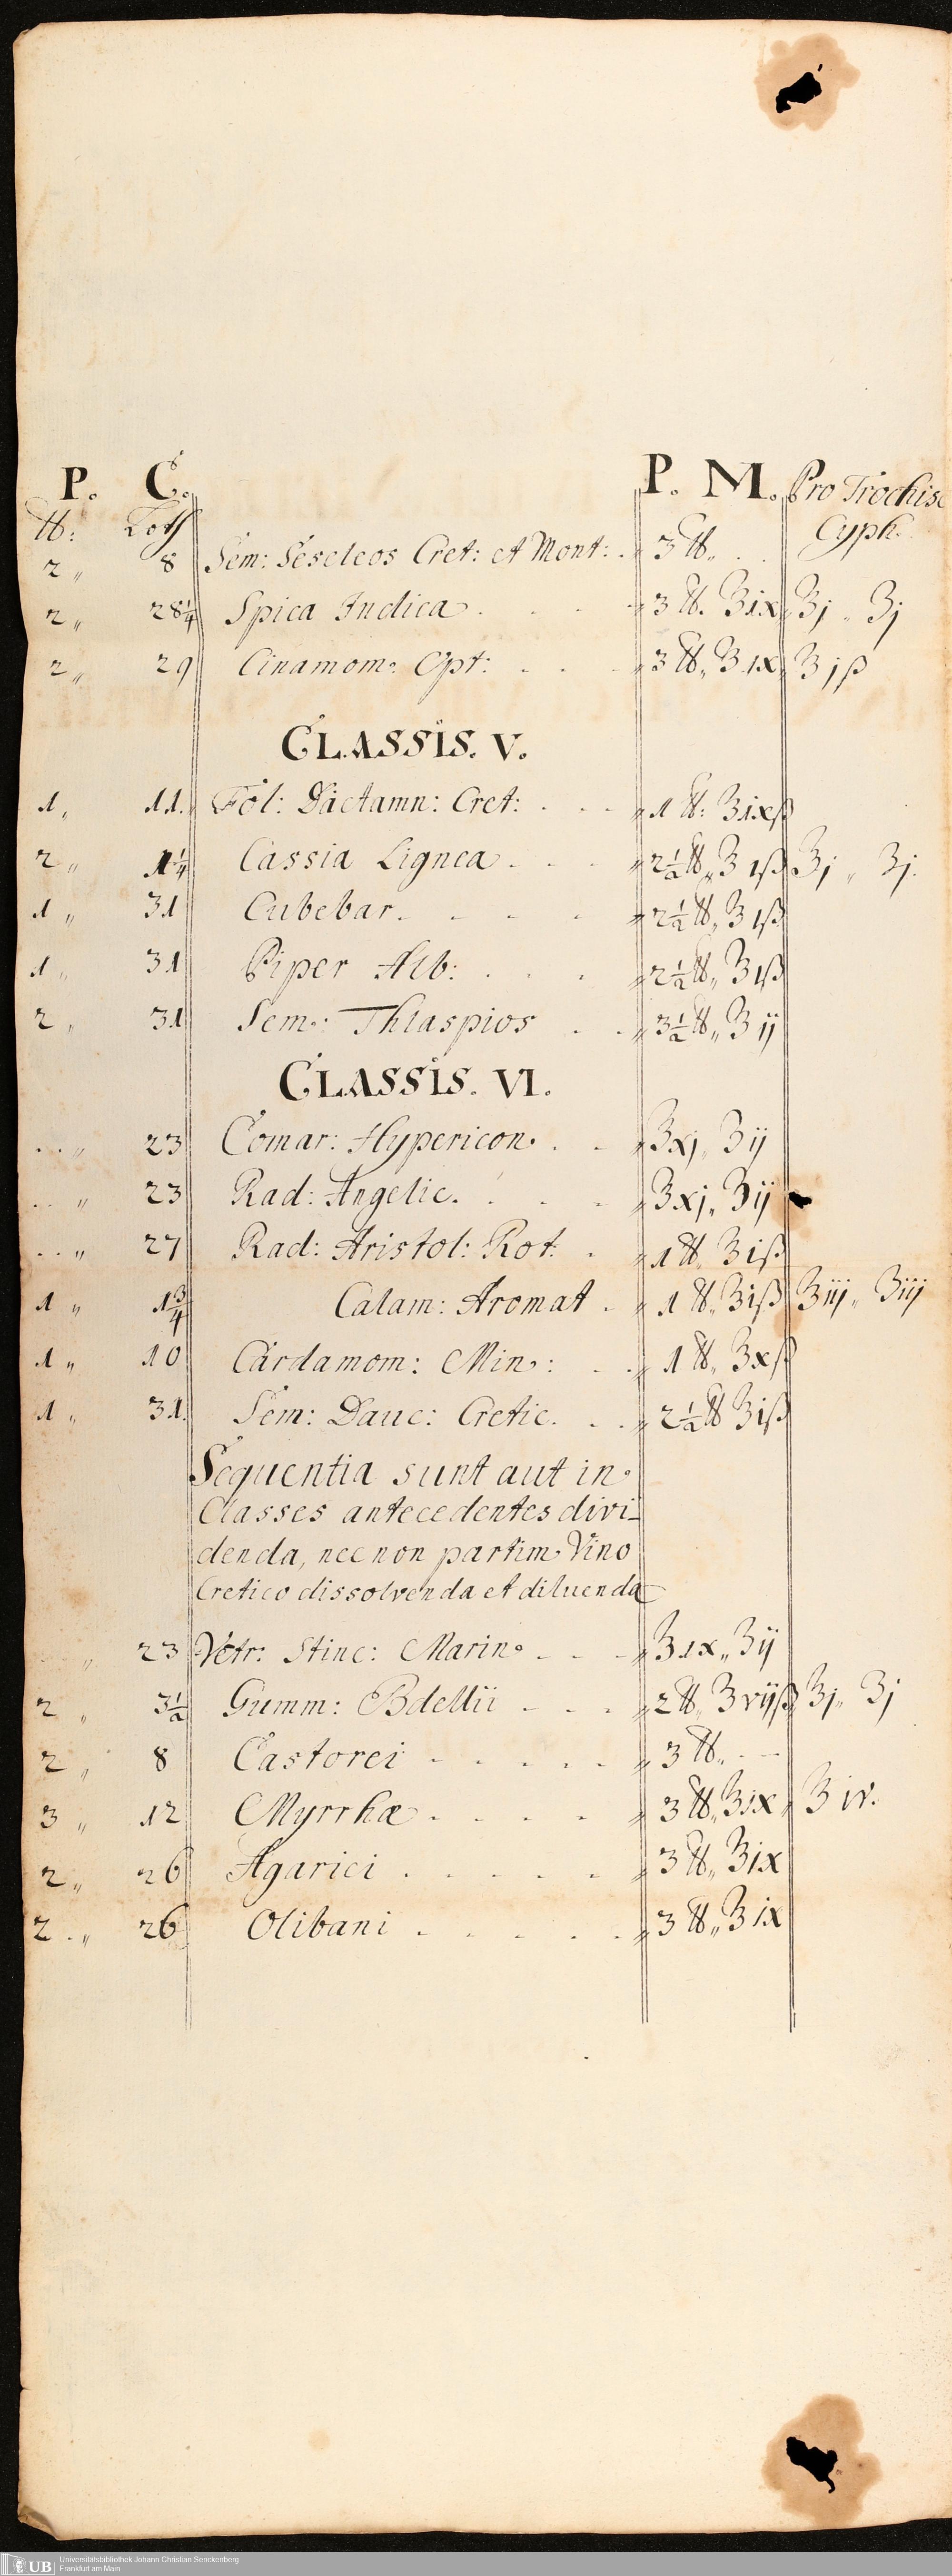 P. C. P. M. Pro Trochisc
℔: Loth Cyph.
2 „ 8 Sem: Seseleos Cret: et Mont: . 3 ℔„
2 „ 28¼ Spica Indica . . . 3 ℔. ℥ix ʒj „ ʒj
2 „ 29 Cinamom: Opt: . . . 3 ℔„ ℥ix ʒjß
CLASSIS. V.
1 „ 11. Fol: Dictamn: Cret: . . . 1 ℔: ℥ixß
2 „ 1¼ Cassia Lignea . . . 2½ ℔„ ℥ıß ʒj „ ʒj.
1 „ 31 Cubebar. - - - 2½ ℔„ ℥ıß
1 „ 31 Piper Alb: . . . 2½ ℔„ ℥ıß
2 „ 31 Sem: Thlaspios . . 3½ ℔„ ℥ij
CLASSIS. VI.
. . „ 23 Comar: Hypericon. . . ℥xj„ ʒij
. . „ 23 Rad: Angelic. . . . ℥xj„ ʒij
. . „ 27 Rad: Aristol: Rot. . 1 ℔„ ℥iß
1 „ 1¾ Calam: Aromat . 1 ℔„ ℥iß ʒiij „ ʒiij
1 „ 10 Cardamom: Min: . . 1 ℔„ ℥xß
1 „ 31. Sem: Dauc: Cretic. . . 2½ ℔ ℥iß
Sequentia sunt aut in
Classes antecedentes divi-
denda, nec non partim Vino
Cretico dissolvenda et diluenda
„ 23 Vetr: Stinc: Marin. - - - ℥ıx„ ʒij
2 „ 3½ Gumm: Bdellii - - . 2 ℔„ ℥vijß ʒj„ ʒj
2 „ 8 Castorei - - . . . 3 ℔„ - -
3 „ 12 Myrrhæ . . . . 3 ℔„ ℥ix„ ʒ iv.
2 „ 26 Agarici . . . . . 3 ℔„ ℥ix
2 . „ 26 Olibani . . . . . 3 ℔„ ℥ix
UB Universitätsbibliothek Johann Christian Senckenberg
Frankfurt am Main